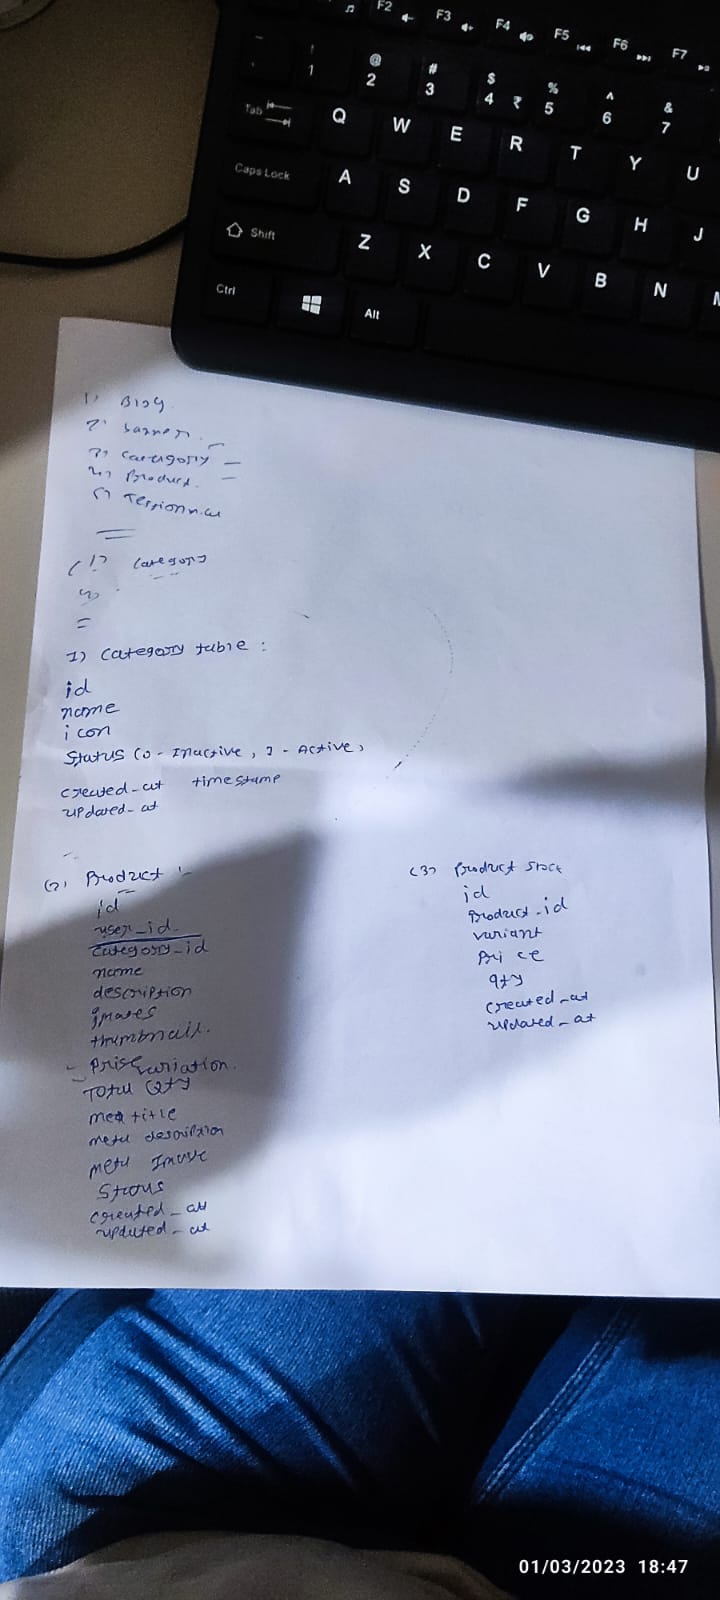 F2 F3 F4 F5 F6 F7
! 1 @ 2 # 3 $ 4 ₹ % 5 ^ 6 & 7
Tab Q W E R T Y U
Caps Lock A S D F G H J
Shift Z X C V B N
Ctrl Alt
1) Blog
2) banner
3) category
4) Product
5)
(1) Category
1) Category table :
id
name
icon
Status (0 - Inactive, 1 - Active)
created_at timestamp
updated_at
(2) Product :-
id
user_id
category_id
name
description
images
thumbnail.
Prise variation.
Total Qty
meta title
meta description
meta Image
Status
created_at
updated_at
(3) Product Stock
id
Product_id
variant
Price
qty
created_at
updated_at
01/03/2023 18:47